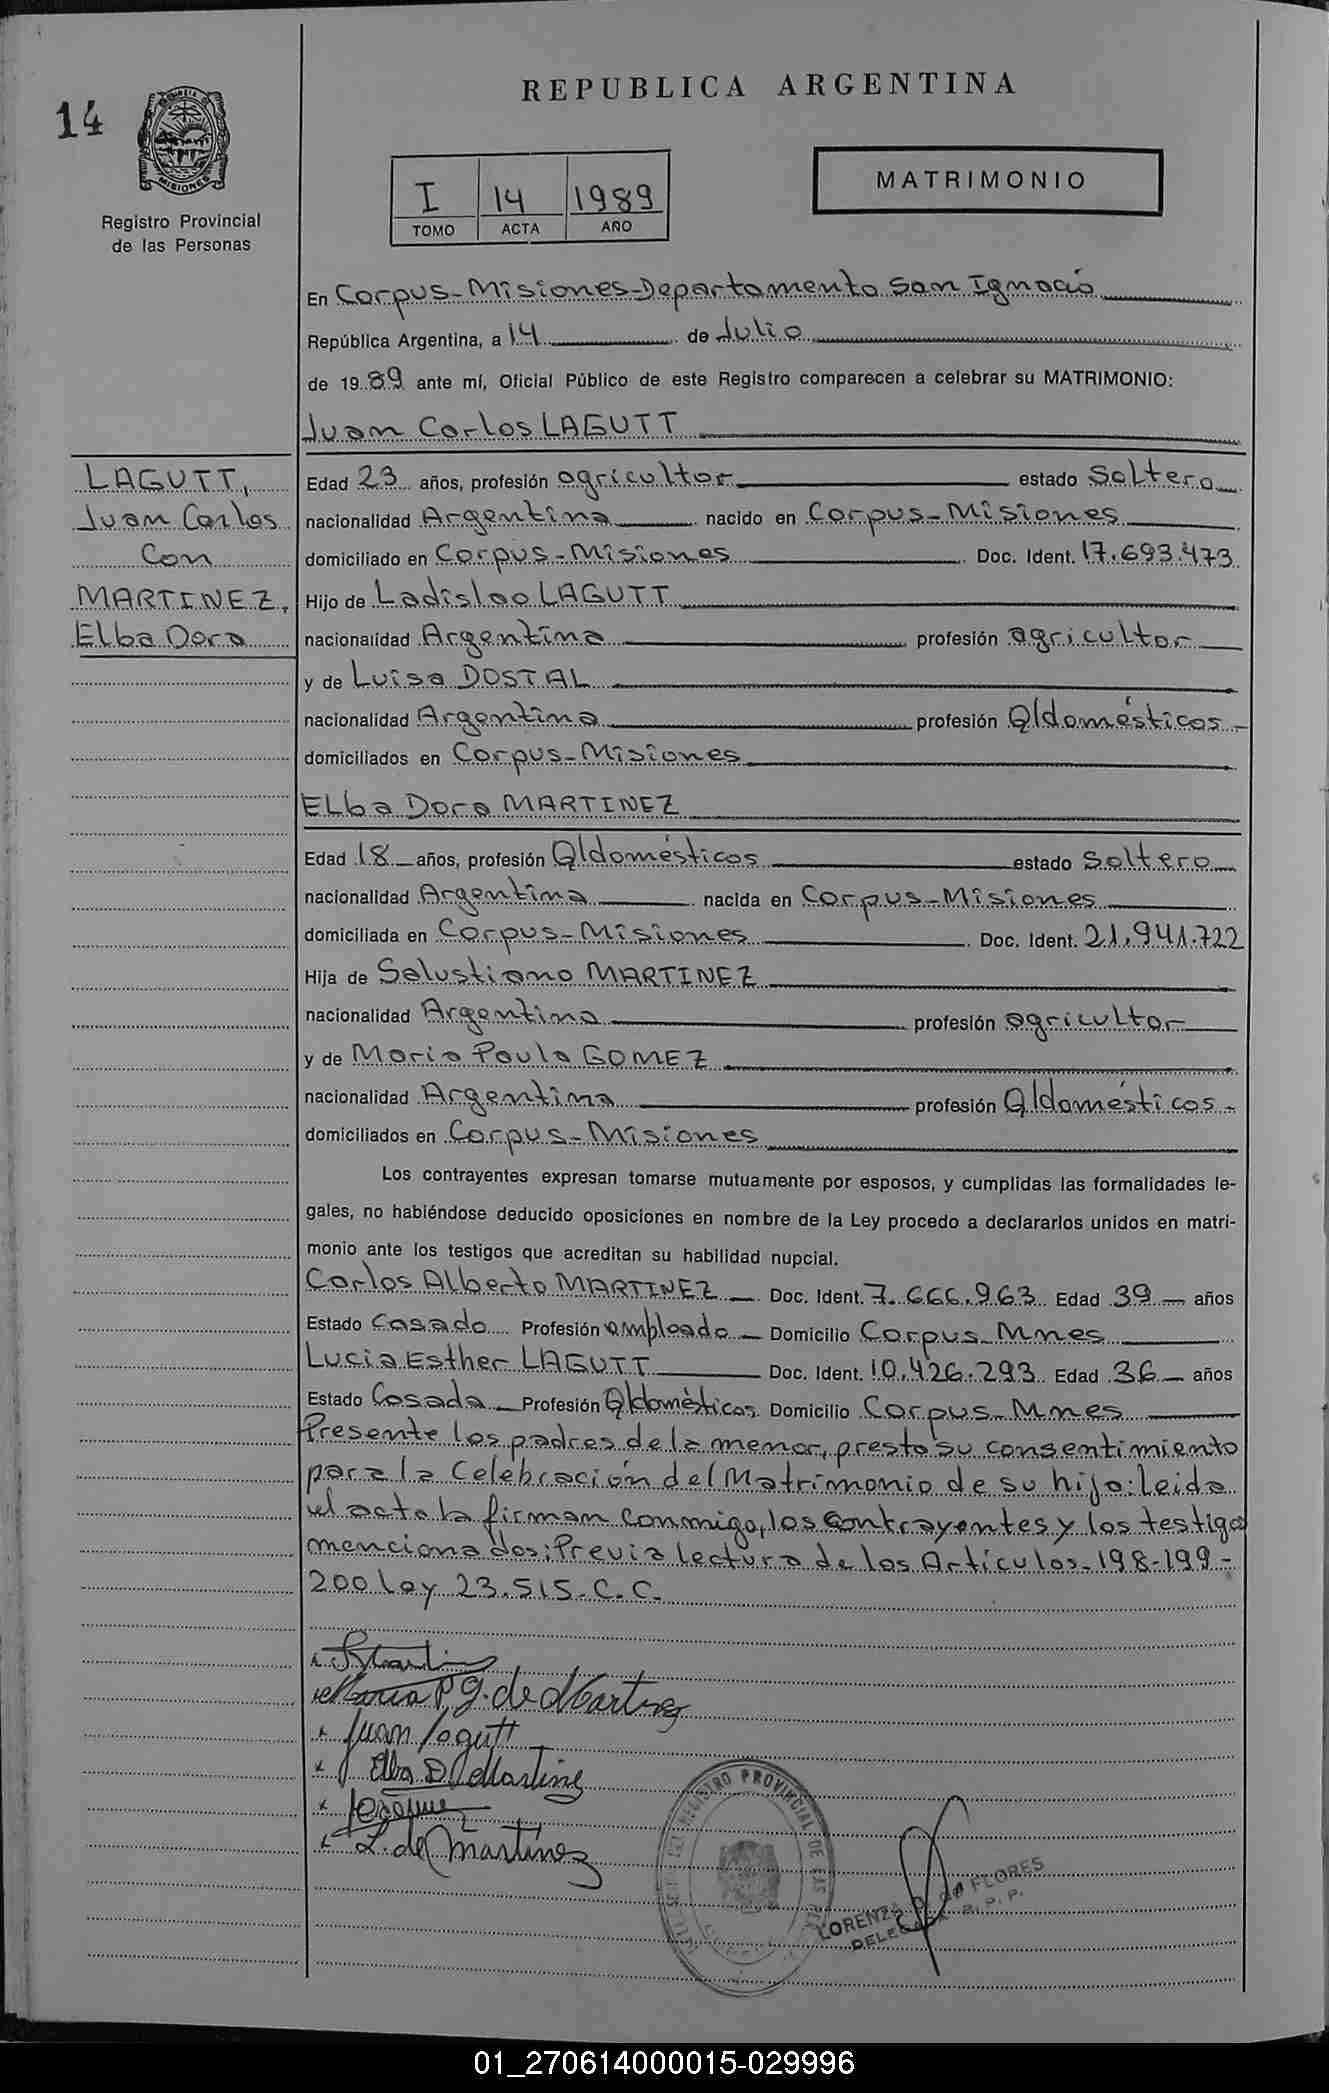 REPUBLICA ARGENTINA
14
MISIONES
Registro Provincial
de las Personas
I 14 1989
TOMO ACTA AÑO
MATRIMONIO
En Corpus-Misiones-Departamento San Ignacio
República Argentina, a 14 de Julio
de 1989 ante mí, Oficial Público de este Registro comparecen a celebrar su MATRIMONIO:
Juan Carlos LAGUTT
LAGUTT,
Juan Carlos
Con
MARTINEZ,
Elba Dora
Edad 23 años, profesión agricultor estado Soltero
nacionalidad Argentina nacido en Corpus-Misiones
domiciliado en Corpus-Misiones Doc. Ident. 17.693.473
Hijo de Ladislao LAGUTT
nacionalidad Argentina profesión agricultor
y de Luisa DOSTAL
nacionalidad Argentina profesión Q/domésticos-
domiciliados en Corpus-Misiones
Elba Dora MARTINEZ
Edad 18 años, profesión Q/domésticos estado soltera
nacionalidad Argentina nacida en Corpus-Misiones
domiciliada en Corpus-Misiones Doc. Ident. 21.941.722
Hija de Salustiano MARTINEZ
nacionalidad Argentina profesión agricultor
y de Maria Paula GOMEZ
nacionalidad Argentina profesión Q/domésticos-
domiciliados en Corpus-Misiones
Los contrayentes expresan tomarse mutuamente por esposos, y cumplidas las formalidades le-
gales, no habiéndose deducido oposiciones en nombre de la Ley procedo a declararlos unidos en matri-
monio ante los testigos que acreditan su habilidad nupcial.
Carlos Alberto MARTINEZ Doc. Ident. 7.666.963 Edad 39 años
Estado Casado Profesión empleado Domicilio Corpus-Mnes
Lucia Esther LAGUTT Doc. Ident. 10.426.293 Edad 36 años
Estado Casada Profesión Q/domésticos Domicilio Corpus-Mnes
Presente los padres de la menor, presta su consentimiento
para la Celebración del Matrimonio de su hija: leida
el acta la firman conmigo, los contrayentes y los testigos
mencionados; Previa lectura de los Artículos-198-199-
200 Ley 23.515-C.C.
Maria P. G. de Martinez
Juan Lagutt
Elba D. Martinez
L. de Martinez
REGISTRO PROVINCIAL DE LAS
LORENZA D. de FLORES
DELEGADA R. P. P.
01_270614000015-029996